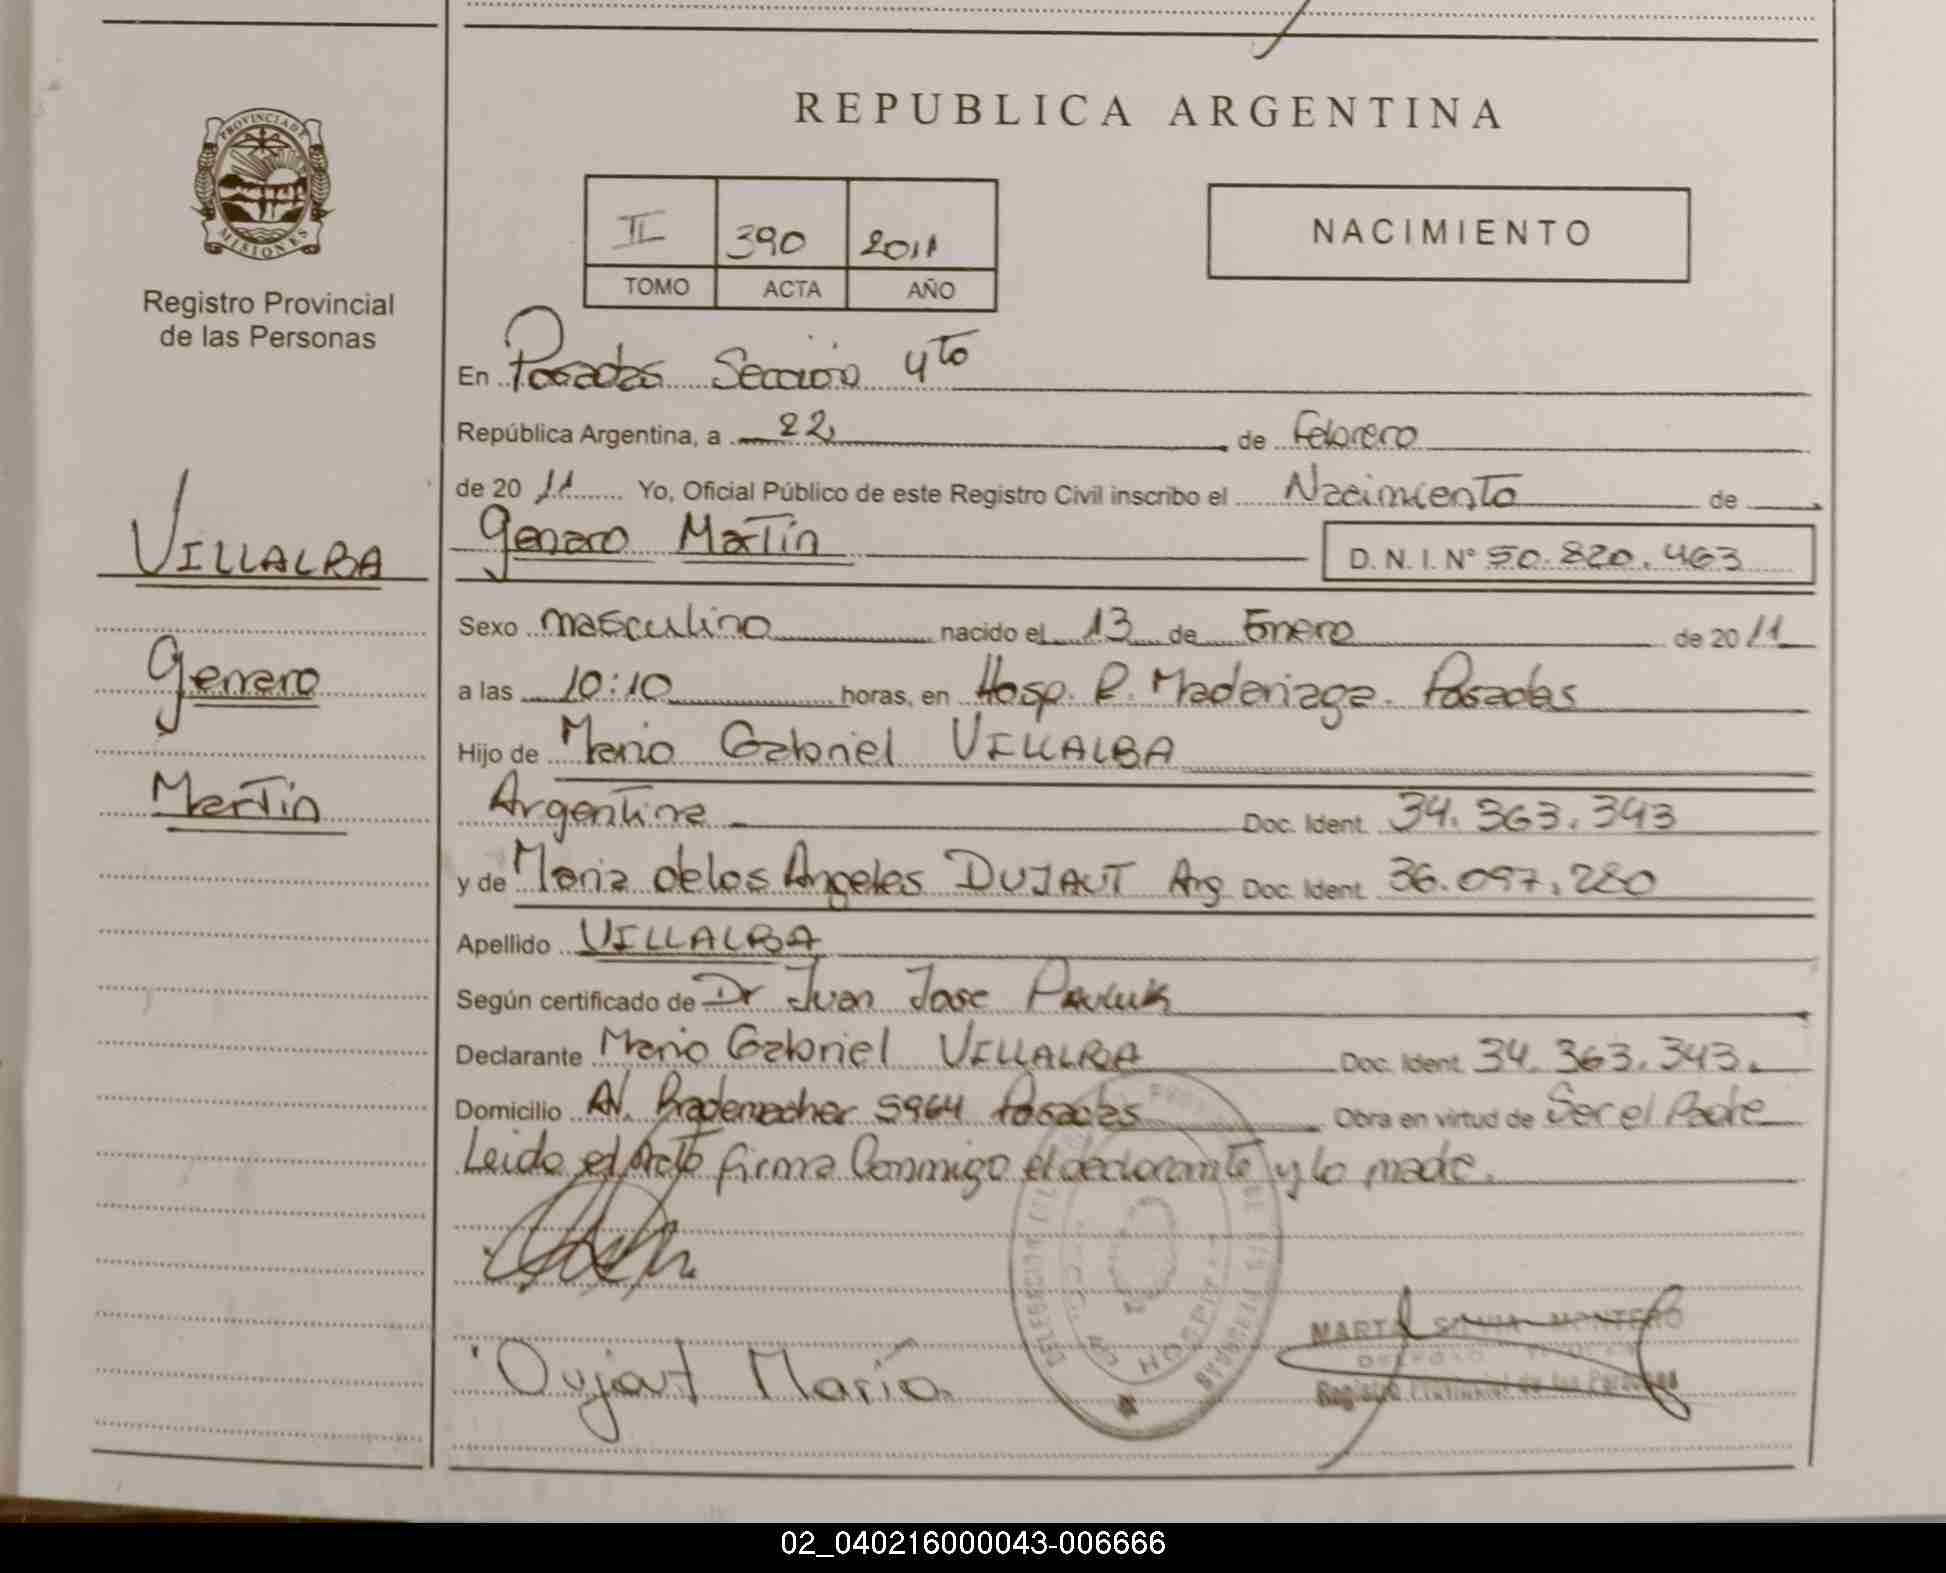 REPUBLICA ARGENTINA
PROVINCIA DE
MISIONES
Registro Provincial
de las Personas
II 390 2011
TOMO ACTA AÑO
NACIMIENTO
En Posadas Sección 4to
República Argentina, a 22 de Febrero
de 20 11 Yo, Oficial Público de este Registro Civil inscribo el Nacimiento de
Genaro Martin D. N. I. N° 50.820.463
VILLALBA
Genaro
Martin
Sexo masculino nacido el 13 de Enero de 20 11
a las 10:10 horas, en Hosp. R. Madariaga. Posadas
Hijo de Mario Gabriel VILLALBA
Argentina Doc. Ident. 34.363.343
y de Maria de los Angeles DUJAUT Arg Doc. Ident. 36.097.280
Apellido VILLALBA
Según certificado de Dr Juan Jose Pauluk
Declarante Mario Gabriel VILLALBA Doc. Ident. 34.363.343.
Domicilio AV. Rademacher 5964 Posadas Obra en virtud de Ser el Padre
Leida el Acta firma Conmigo el declarante y la madre.
Dujaut María
MARTA SILVIA MONTERO
Registro Provincial de las Personas
02_040216000043-006666